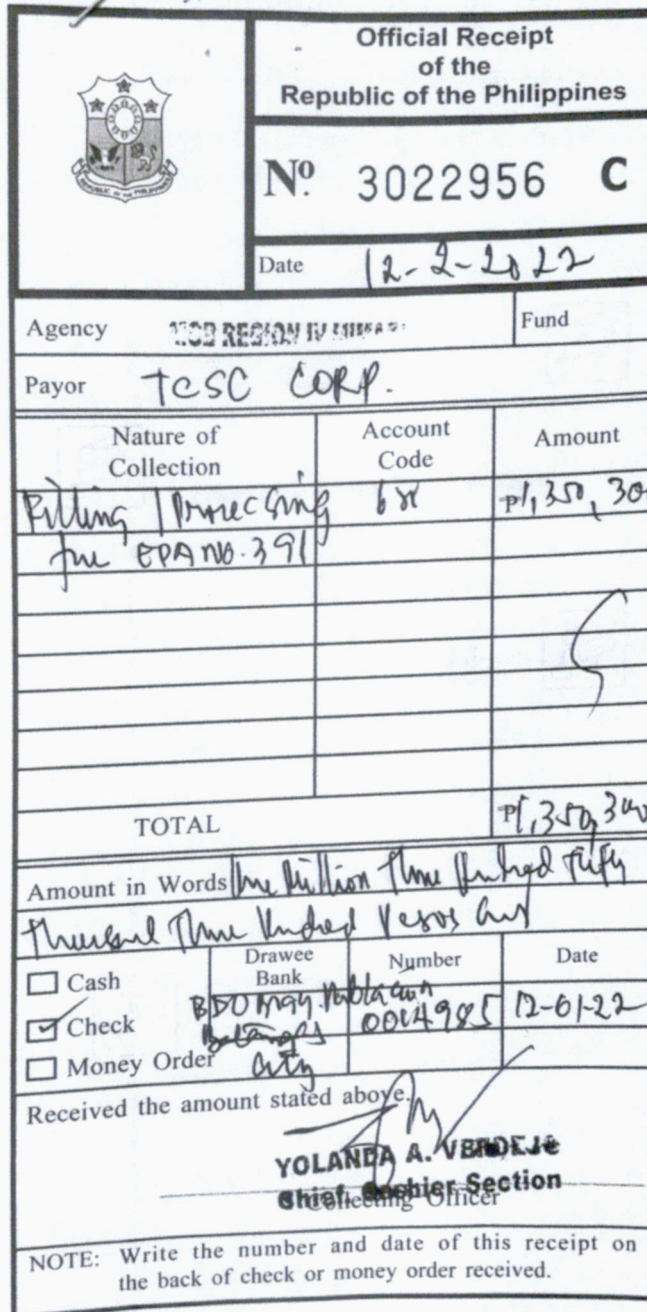 Official Receipt
of the
Republic of the Philippines
Nº 3022956 C
Date 12-2-2022
Agency REGION IV
Fund
Payor TCSC CORP.
Nature of Collection
Account Code
Amount
Filling / Processing
₱1,350,30
for EPA NO. 391
TOTAL ₱1,350,300
Amount in Words One Million Three Hundred Fifty
Thousand Three Hundred Pesos
Cash
Drawee Bank
Number
Date
Check
BDO
0014985
12-01-22
Batangas
Money Order
City
Received the amount stated above.
YOLANDA A.
Chief, Cashier Section
Collecting Officer
NOTE: Write the number and date of this receipt on
the back of check or money order received.